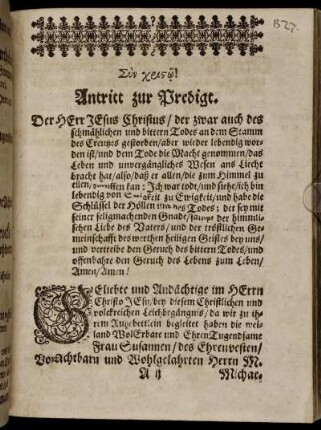 B27.
Σὺν χριστῷ!
Antritt zur Predigt.
Der HErr JEsus Christus / der zwar auch des
schmählichen und bittern Todes an dem Stamm
des Creutzes gestorben / aber wieder lebendig wor-
den ist / und dem Tode die Macht genommen / das
Leben und unvergängliches Wesen ans Liecht
bracht hat / also / daß er allen / die zum Himmel zu
eilen / ruffen kan: Ich war todt / und siehe / ich bin
lebendig von Ewigkeit zu Ewigkeit / und habe die
Schlüssel der Höllen und des Todes: der sey mit
seiner seligmachenden Gnade / sampt der himmli-
schen Liebe des Vaters / und der tröstlichen Ge-
meinschafft des werthen heiligen Geistes bey uns /
und vertreibe den Geruch des bittern Todes / und
offenbahre den Geruch des Lebens zum Leben /
Amen / Amen!
GEliebte und Andächtige im HErrn
Christo JEsu / bey diesem Christlichen und
volckreichen Leichbegängnis / da wir zu ih-
rem Ruhebettlein begleitet haben die wei-
land WolErbare und EhrenTugendsame
Frau Susannen / des Ehrenvesten /
Vorachtbarn und Wohlgelahrten Herrn M.
A ij Michae-